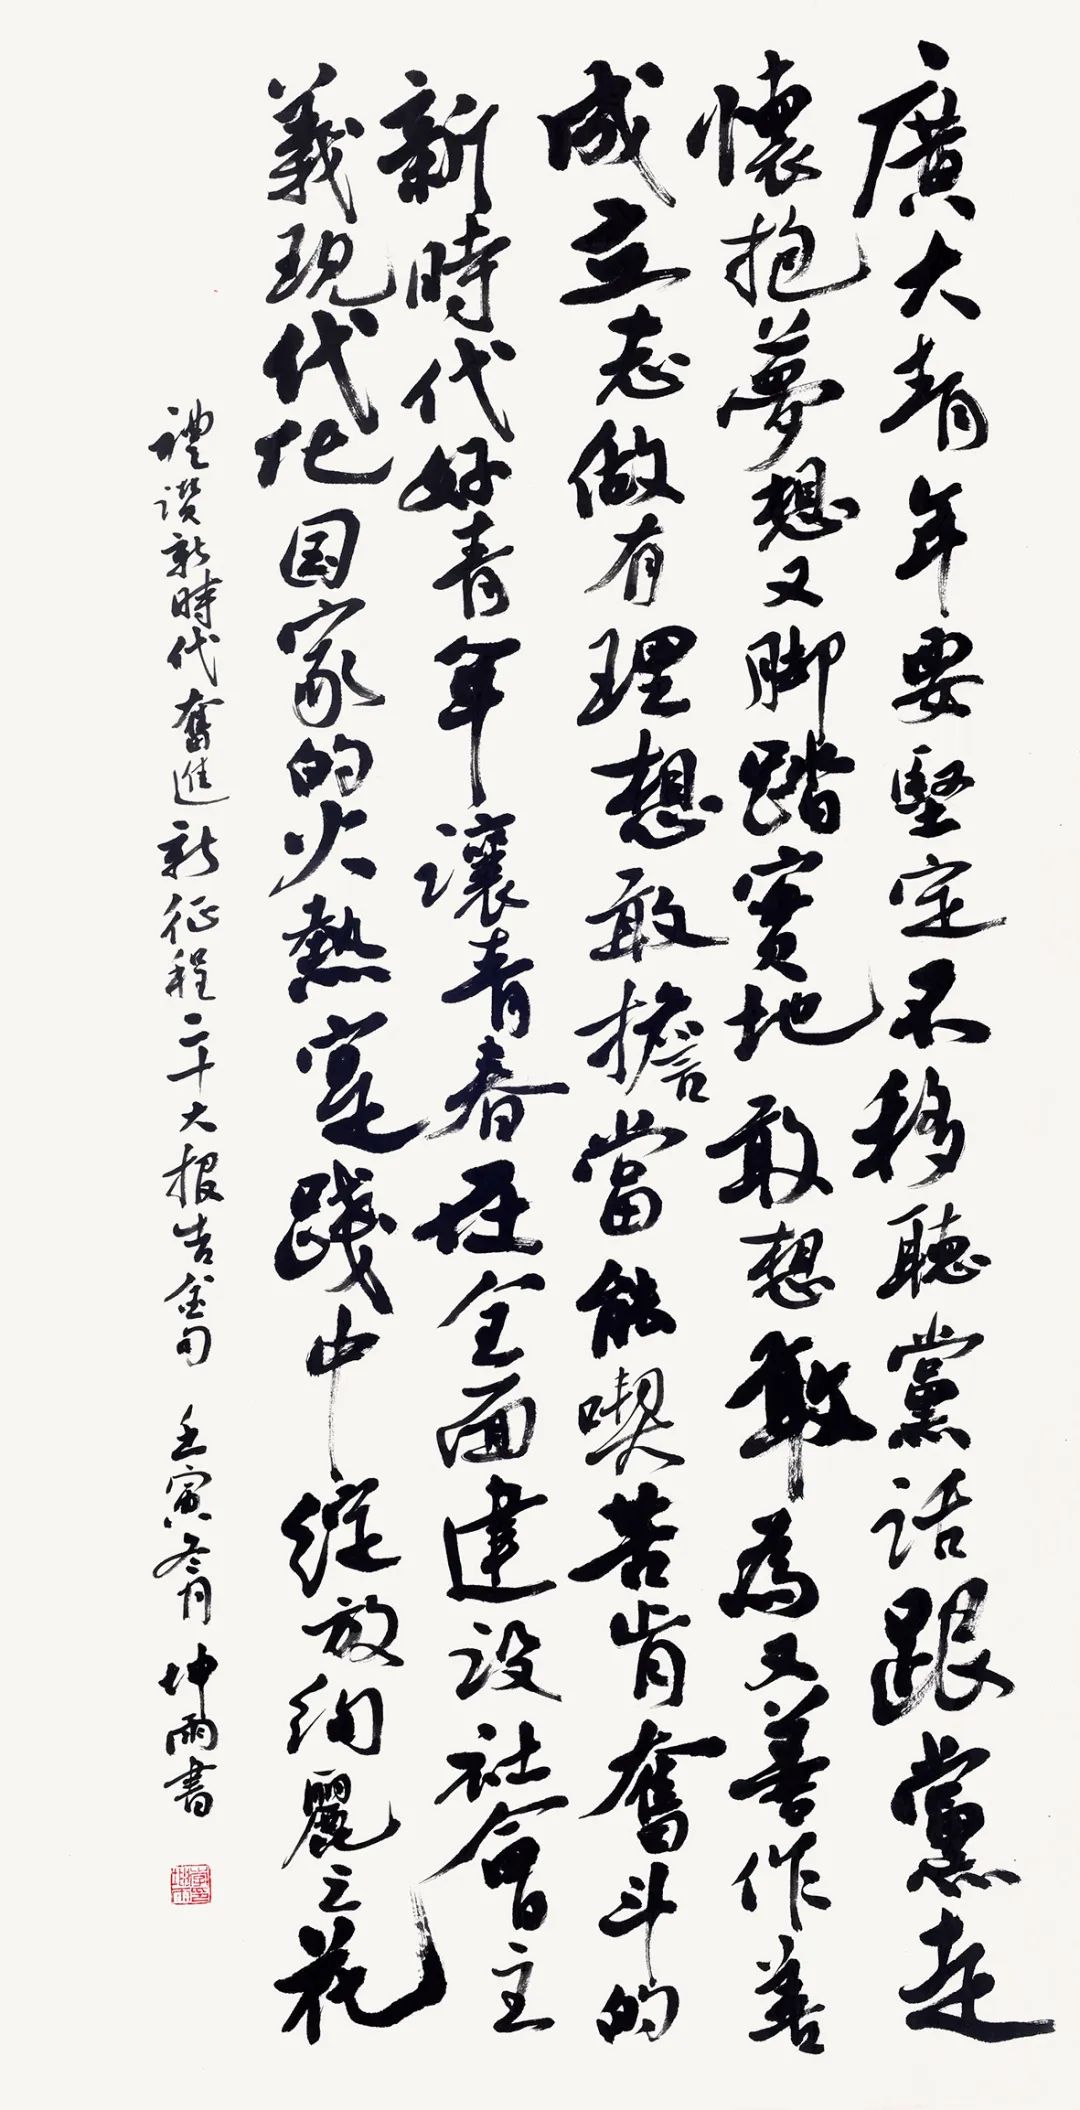 廣大青年要堅定不移聽黨話跟黨走
懷抱夢想又脚踏實地敢想敢為又善作善
成立志做有理想敢擔當能喫苦肯奮斗的
新時代好青年讓青春在全面建設社會主
義現代化国家的火熱寔踐中綻放絢麗之花
禮讚新時代奮進新征程二十大報告金句 壬寅冬月 坤雨書